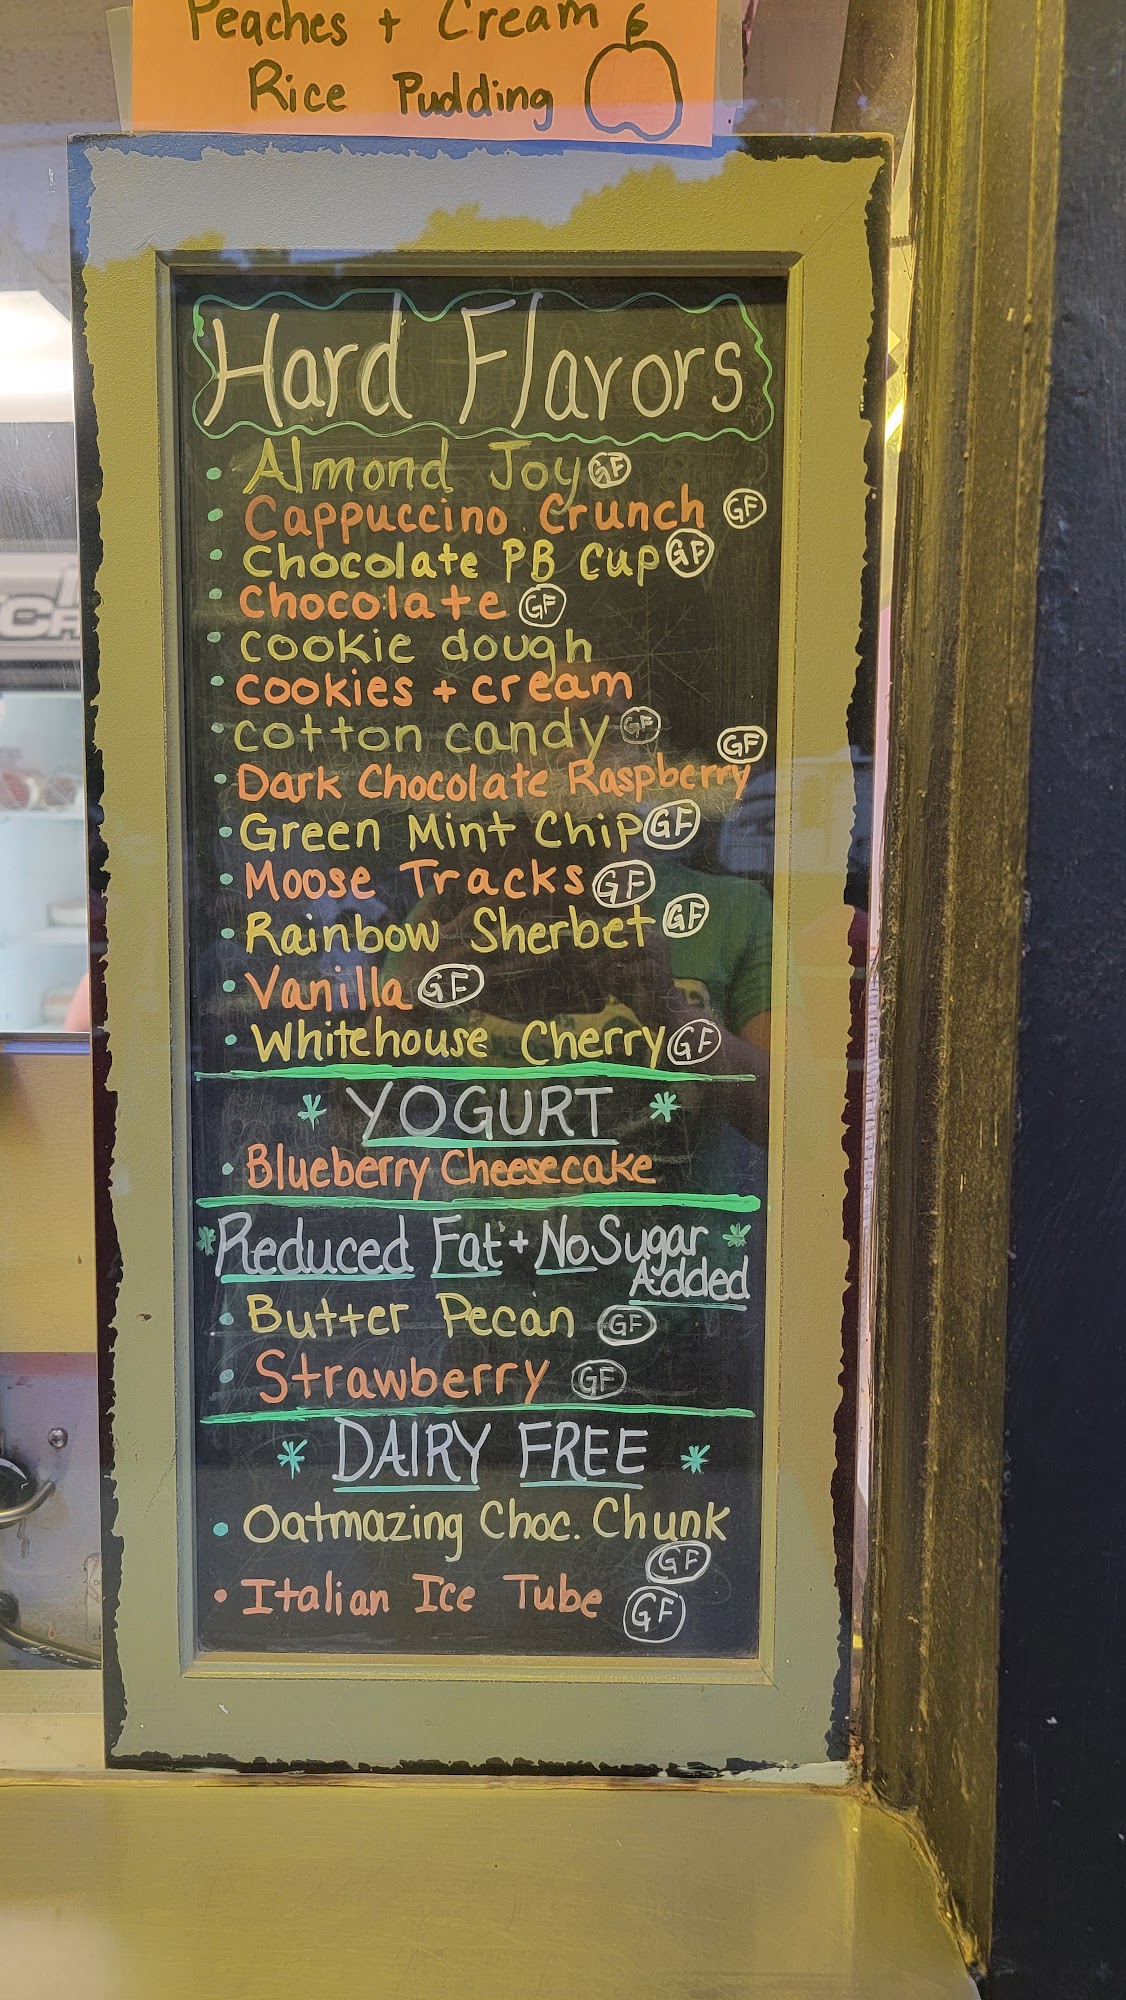 Peaches + Cream
Rice Pudding
Hard Flavors
• Almond Joy GF
• Cappuccino Crunch GF
• Chocolate PB Cup GF
• Chocolate GF
• Cookie dough
• Cookies + cream
• Cotton candy GF
• Dark Chocolate Raspberry GF
• Green Mint Chip GF
• Moose Tracks GF
• Rainbow Sherbet GF
• Vanilla GF
• Whitehouse Cherry GF
* YOGURT *
• Blueberry Cheesecake
* Reduced Fat + No Sugar *
Added
• Butter Pecan GF
• Strawberry GF
* DAIRY FREE *
• Oatmazing Choc. Chunk
GF
• Italian Ice Tube GF